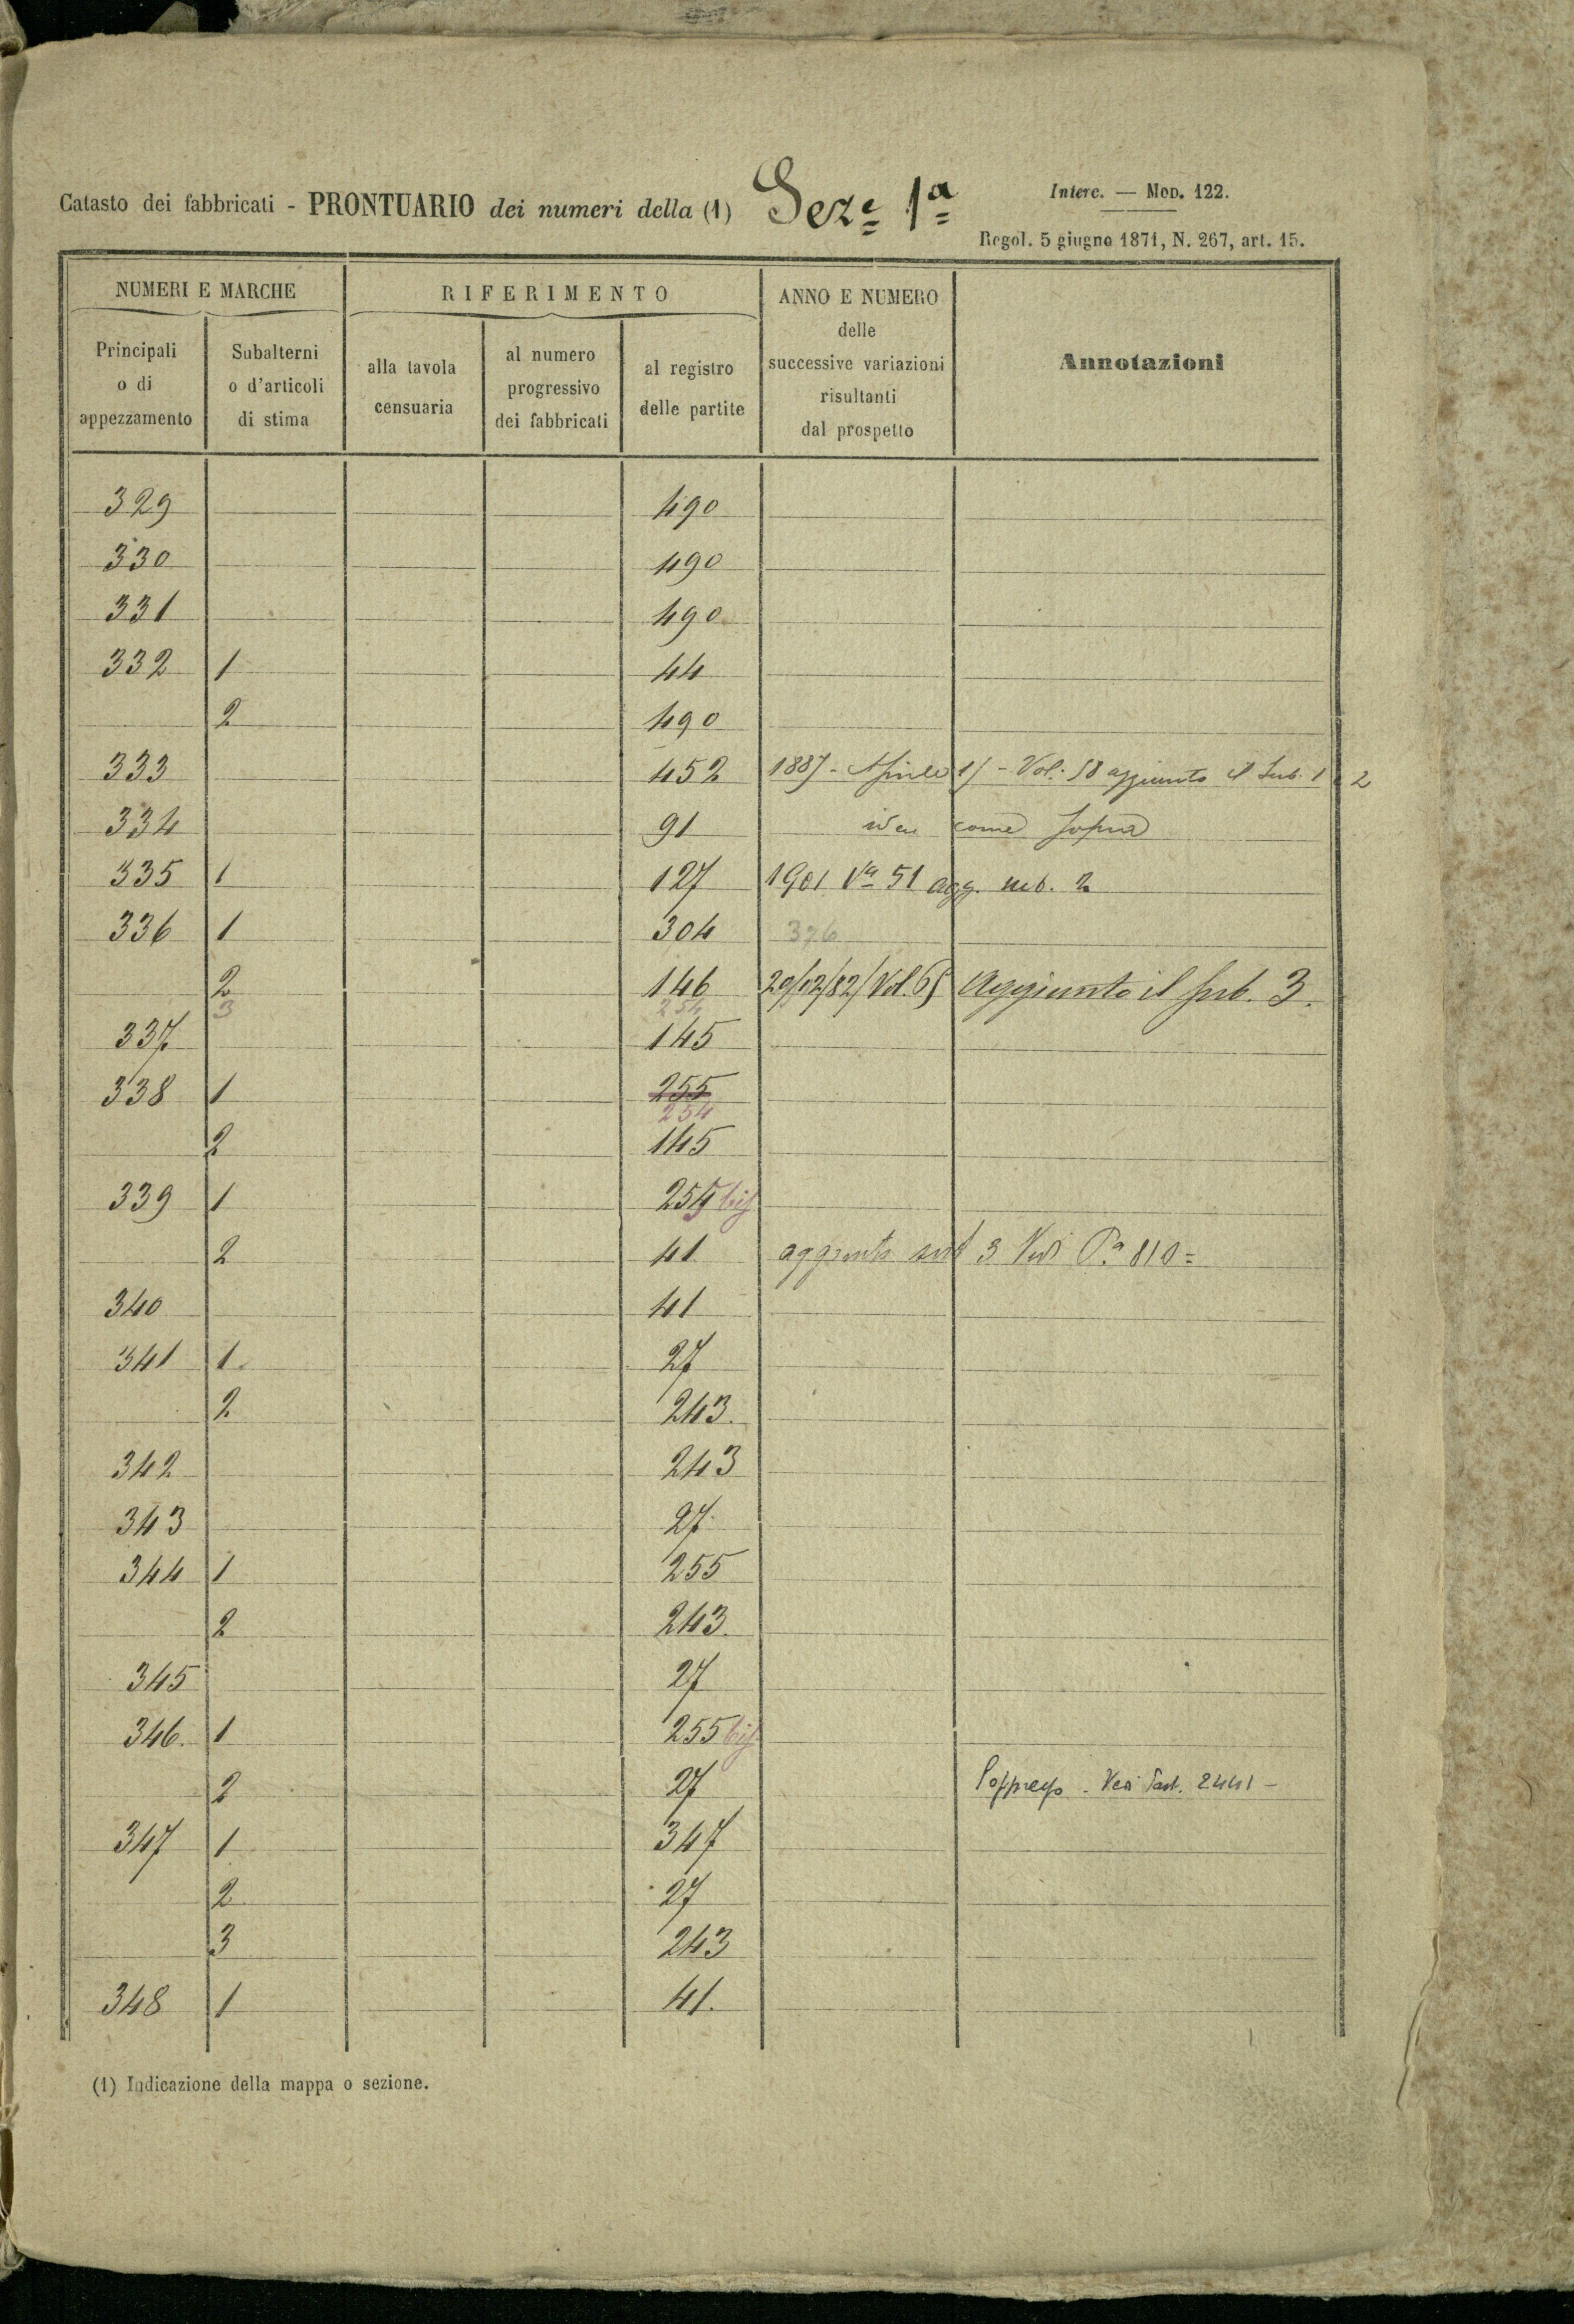 Catasto dei fabbricati - PRONTUARIO dei numeri della (1) Sez.e 1a
Interc. — Mod. 122.
Regol. 5 giugno 1871, N. 267, art. 15.
NUMERI E MARCHE
Principali o di appezzamento
Subalterni o d'articoli di stima
RIFERIMENTO
alla tavola censuaria
al numero progressivo dei fabbricati
al registro delle partite
ANNO E NUMERO delle successive variazioni risultanti dal prospetto
Annotazioni
329 490
330 490
331 490
332 1 44
2 490
333 452 1887 - Aprile - Vol. 58 aggiunto il Sub. 1 2
334 91 come sopra
335 1 127 1901 Va 51 agg. sub. 2
336 1 304 376
2 146 29/12/82/Vol. Aggiunto il Sub. 3.
3 254
337 145
338 1 255
254
2 145
339 1 255 bis
2 41 aggiunto sub 3 Vedi Pa 810=
340 41
341 1. 27
2 243.
342 243
343 27
344 1 255
2 243.
345 27
346. 1 255 bis
2 27 Soppresso - Vedi Part. 2441 -
347 1 347
2 27
3 243
348 1 41.
(1) Indicazione della mappa o sezione.